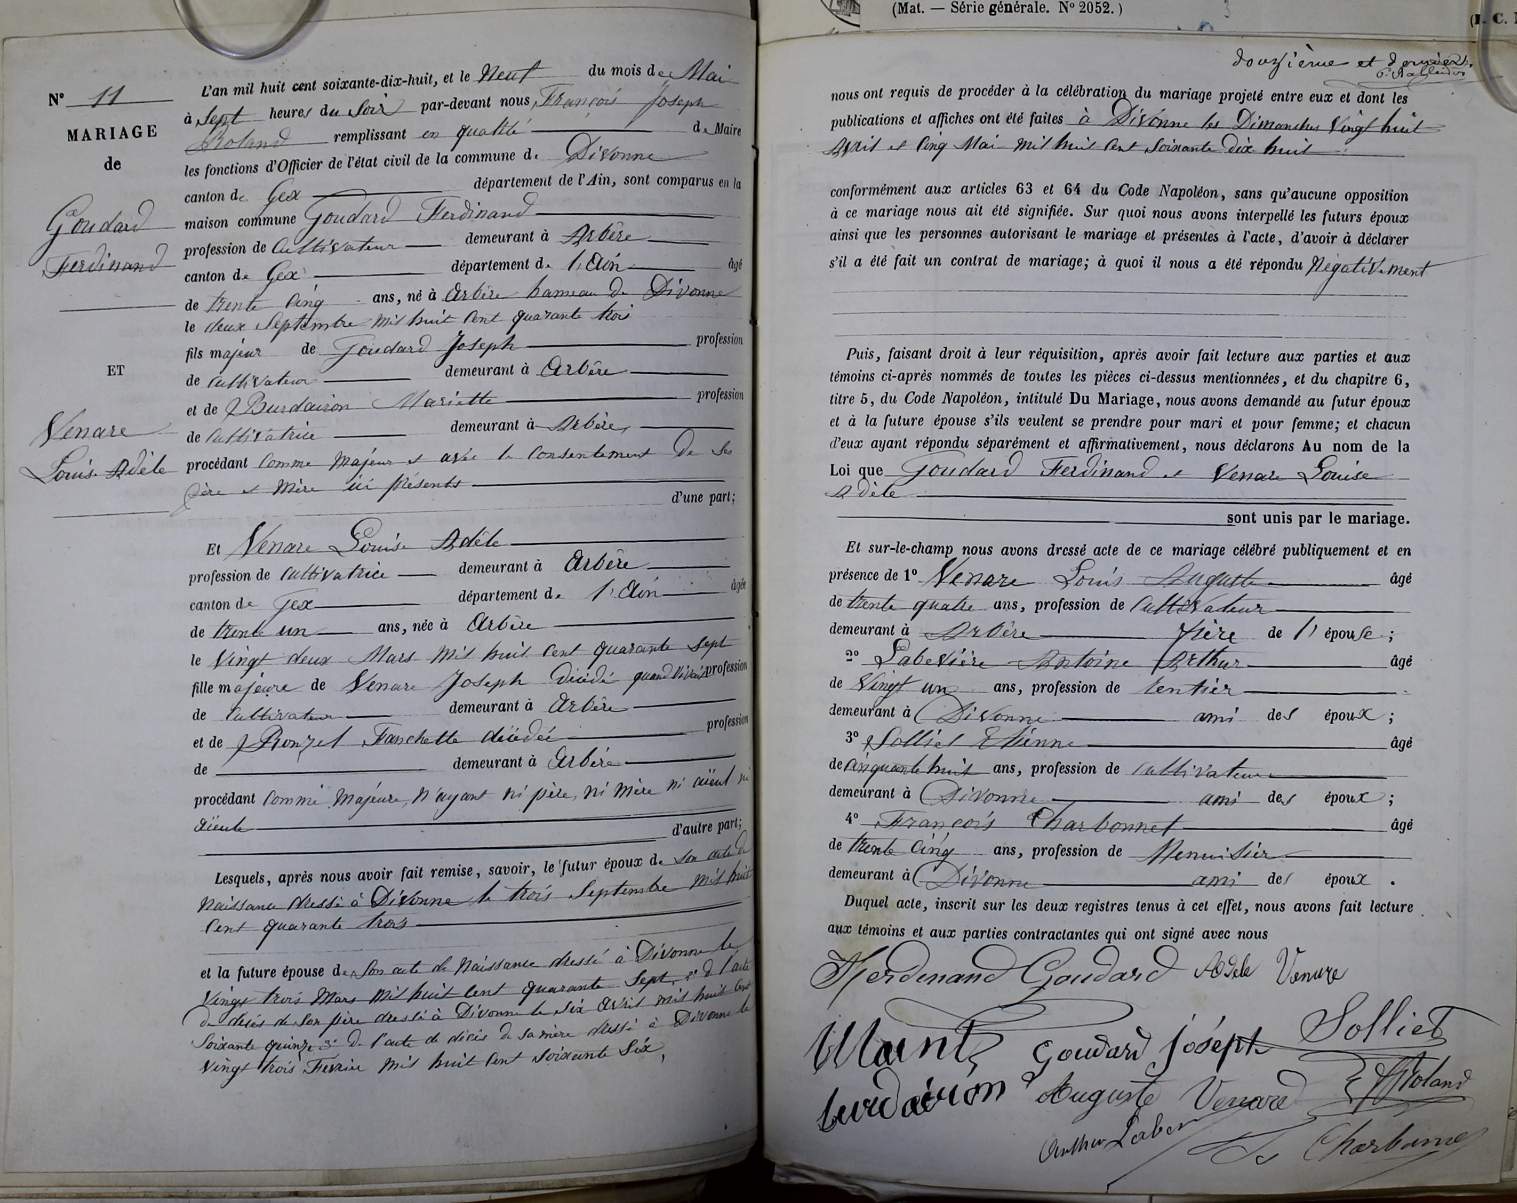 (Mat. — Série générale. N° 2052.)
N° 11
MARIAGE
de
Goudard
Ferdinand
ET
Venare
Louise Adèle
L'an mil huit cent soixante-dix-huit, et le Neuf du mois de Mai
à Sept heures du Soir par-devant nous, François Joseph
Roland remplissant en qualité de Maire
les fonctions d'Officier de l'état civil de la commune de Divonne
canton de Gex département de l'Ain, sont comparus en la
maison commune Goudard Ferdinand
profession de Cultivateur demeurant à Arbère
canton de Gex département de l'Ain âgé
de trente cinq ans, né à Arbère hameau de Divonne
le deux Septembre mil huit cent quarante trois
fils majeur de Goudard Joseph profession
de cultivateur demeurant à Arbère
et de Burdairon Mariette profession
de Cultivatrice demeurant à Arbère,
procédant comme majeur et avec le consentement de ses
père et mère ici présents
d'une part;
Et Venare Louise Adèle
profession de cultivatrice demeurant à Arbère
canton de Gex département de l'Ain âgée
de trente un ans, née à Arbère
le Vingt deux Mars mil huit cent quarante sept
fille majeure de Venare Joseph décédé quand vivait profession
de Cultivateur demeurant à Arbère
et de Fanchette décédée profession
de demeurant à Arbère
procédant comme majeure, n'ayant ni père, ni mère ni aïeul ni
aïeule
d'autre part;
Lesquels, après nous avoir fait remise, savoir, le futur époux de son acte de
Naissance dressé à Divonne le trois Septembre mil huit
cent quarante trois
et la future épouse de son acte de Naissance dressé à Divonne le
Vingt trois Mars mil huit cent quarante Sept, 2° de l'acte
de décès de son père dressé à Divonne le six Avril mil huit cent
soixante quinze 3° de l'acte de décès de sa mère dressé à Divonne le
Vingt trois Février mil huit cent soixante six,
douzième et dernier
nous ont requis de procéder à la célébration du mariage projeté entre eux et dont les
publications et affiches ont été faites à Divonne les Dimanches Vingt huit
Avril et cinq Mai mil huit cent soixante dix huit
conformément aux articles 63 et 64 du Code Napoléon, sans qu'aucune opposition
à ce mariage nous ait été signifiée. Sur quoi nous avons interpellé les futurs époux
ainsi que les personnes autorisant le mariage et présentes à l'acte, d'avoir à déclarer
s'il a été fait un contrat de mariage; à quoi il nous a été répondu Négativement
Puis, faisant droit à leur réquisition, après avoir fait lecture aux parties et aux
témoins ci-après nommés de toutes les pièces ci-dessus mentionnées, et du chapitre 6,
titre 5, du Code Napoléon, intitulé Du Mariage, nous avons demandé au futur époux
et à la future épouse s'ils veulent se prendre pour mari et pour femme; et chacun
d'eux ayant répondu séparément et affirmativement, nous déclarons Au nom de la
Loi que Goudard Ferdinand et Venare Louise
Adèle
sont unis par le mariage.
Et sur-le-champ nous avons dressé acte de ce mariage célébré publiquement et en
présence de 1° Venare Louis Auguste âgé
de trente quatre ans, profession de Cultivateur
demeurant à Arbère frère de l'épouse;
2° Labevière Antoine Arthur âgé
de Vingt un ans, profession de rentier
demeurant à Divonne ami des époux;
3° Solliet Etienne âgé
de cinquante huit ans, profession de cultivateur
demeurant à Divonne ami des époux;
4° François Charbonnet âgé
de trente cinq ans, profession de Menuisier
demeurant à Divonne ami des époux.
Duquel acte, inscrit sur les deux registres tenus à cet effet, nous avons fait lecture
aux témoins et aux parties contractantes qui ont signé avec nous
Ferdinand Goudard Adele Venare
Goudard joséph Solliet
burdairon Auguste Venard Roland
Arthur Charbonnet